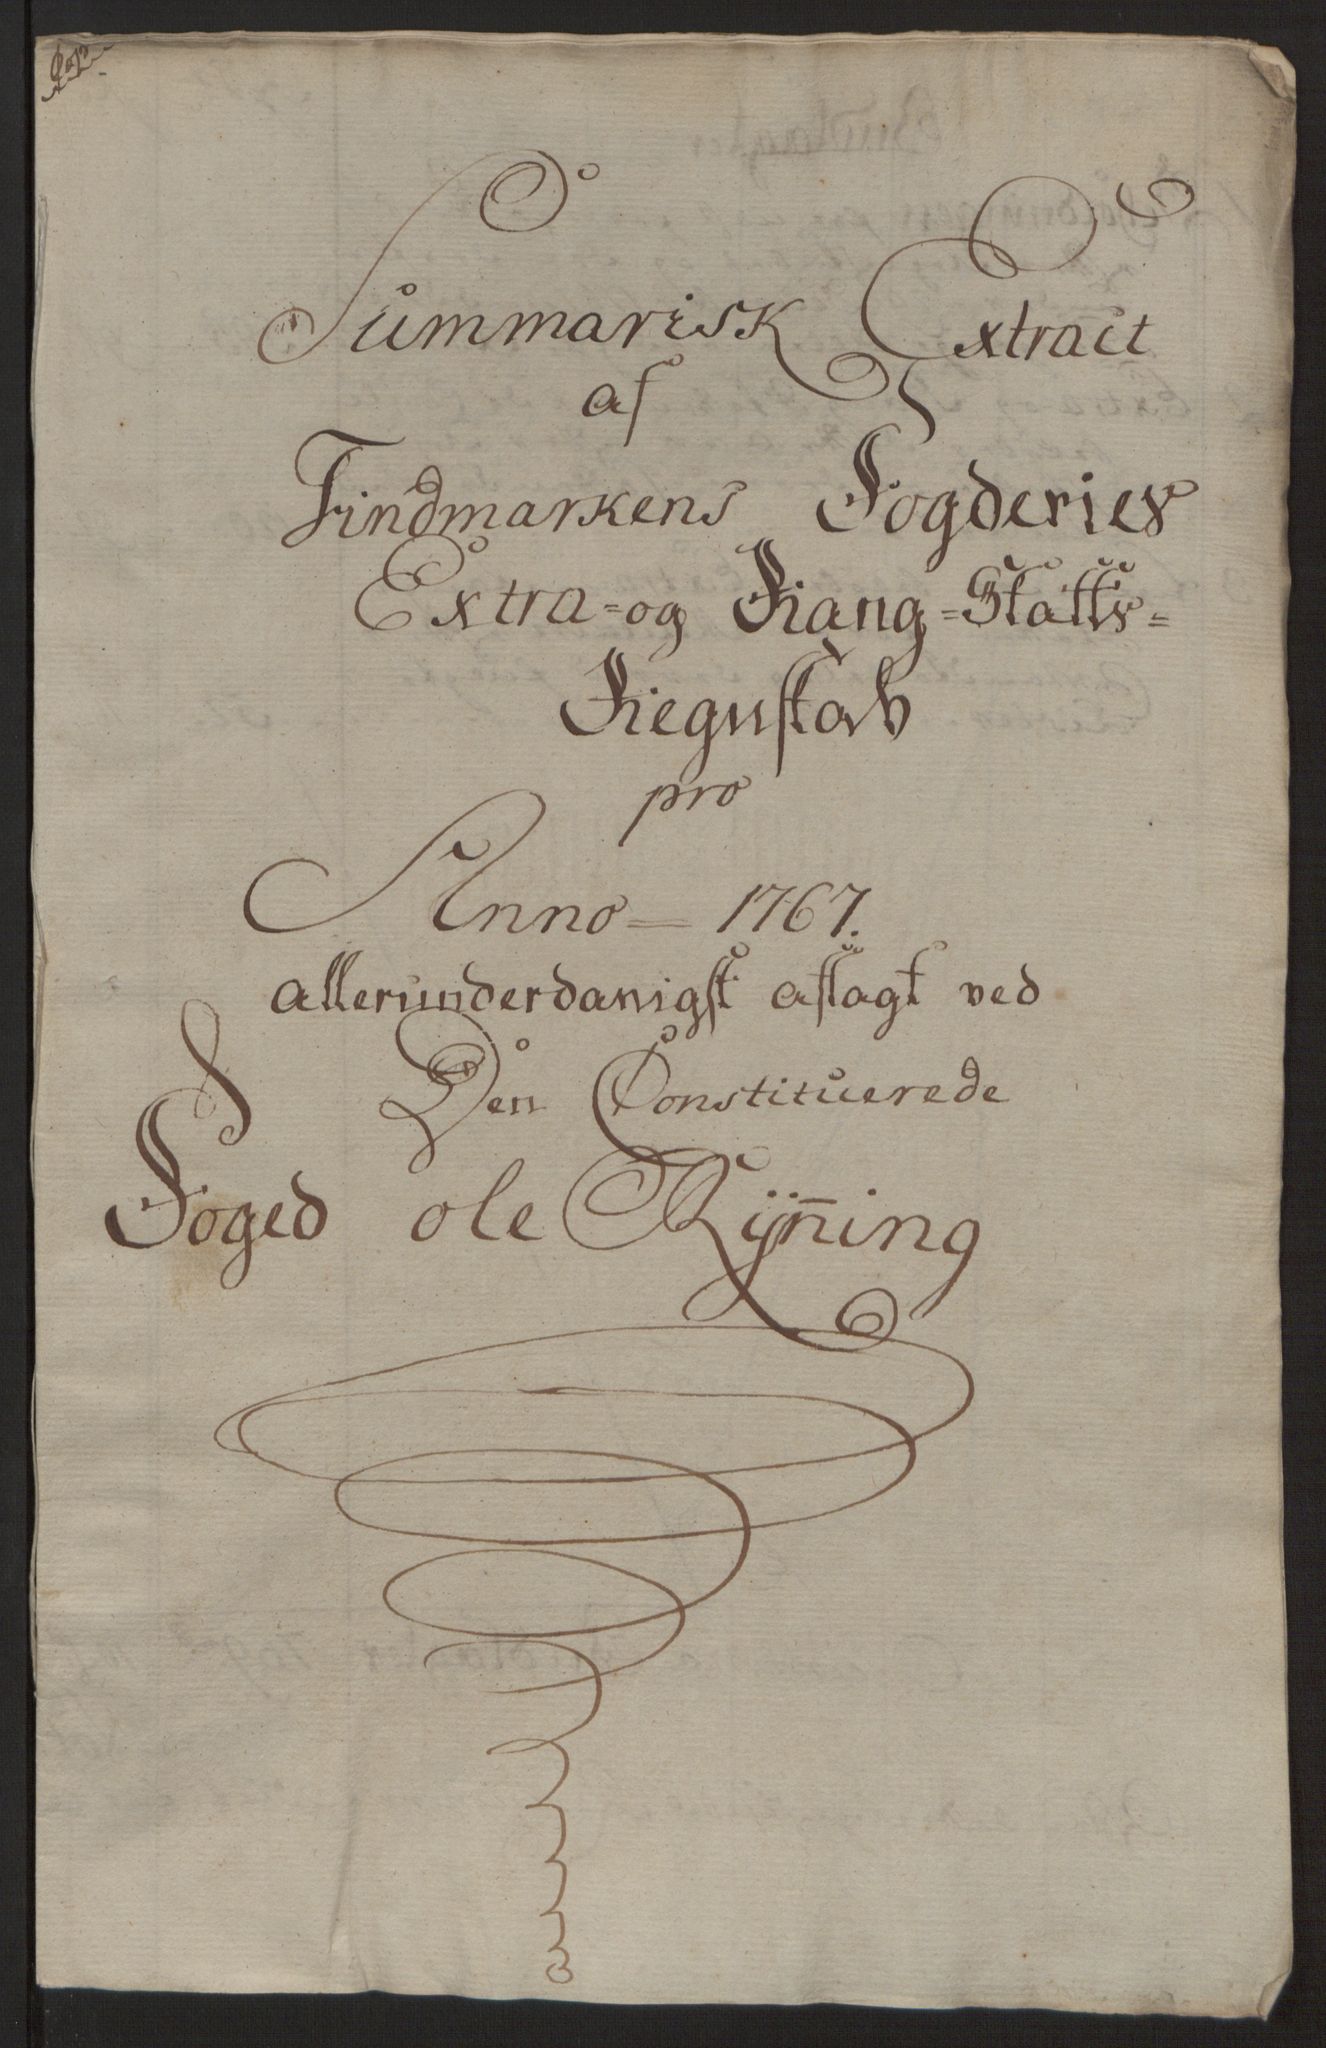 Summarisk Extract
af
Findmarkens Fogderies
Extra- og Rang-Skatts-
Regnskab
pro
Anno 1767.
allerunderdanigst aflagt ved
Den Constituerede
Foged Ole Rÿn̄ing